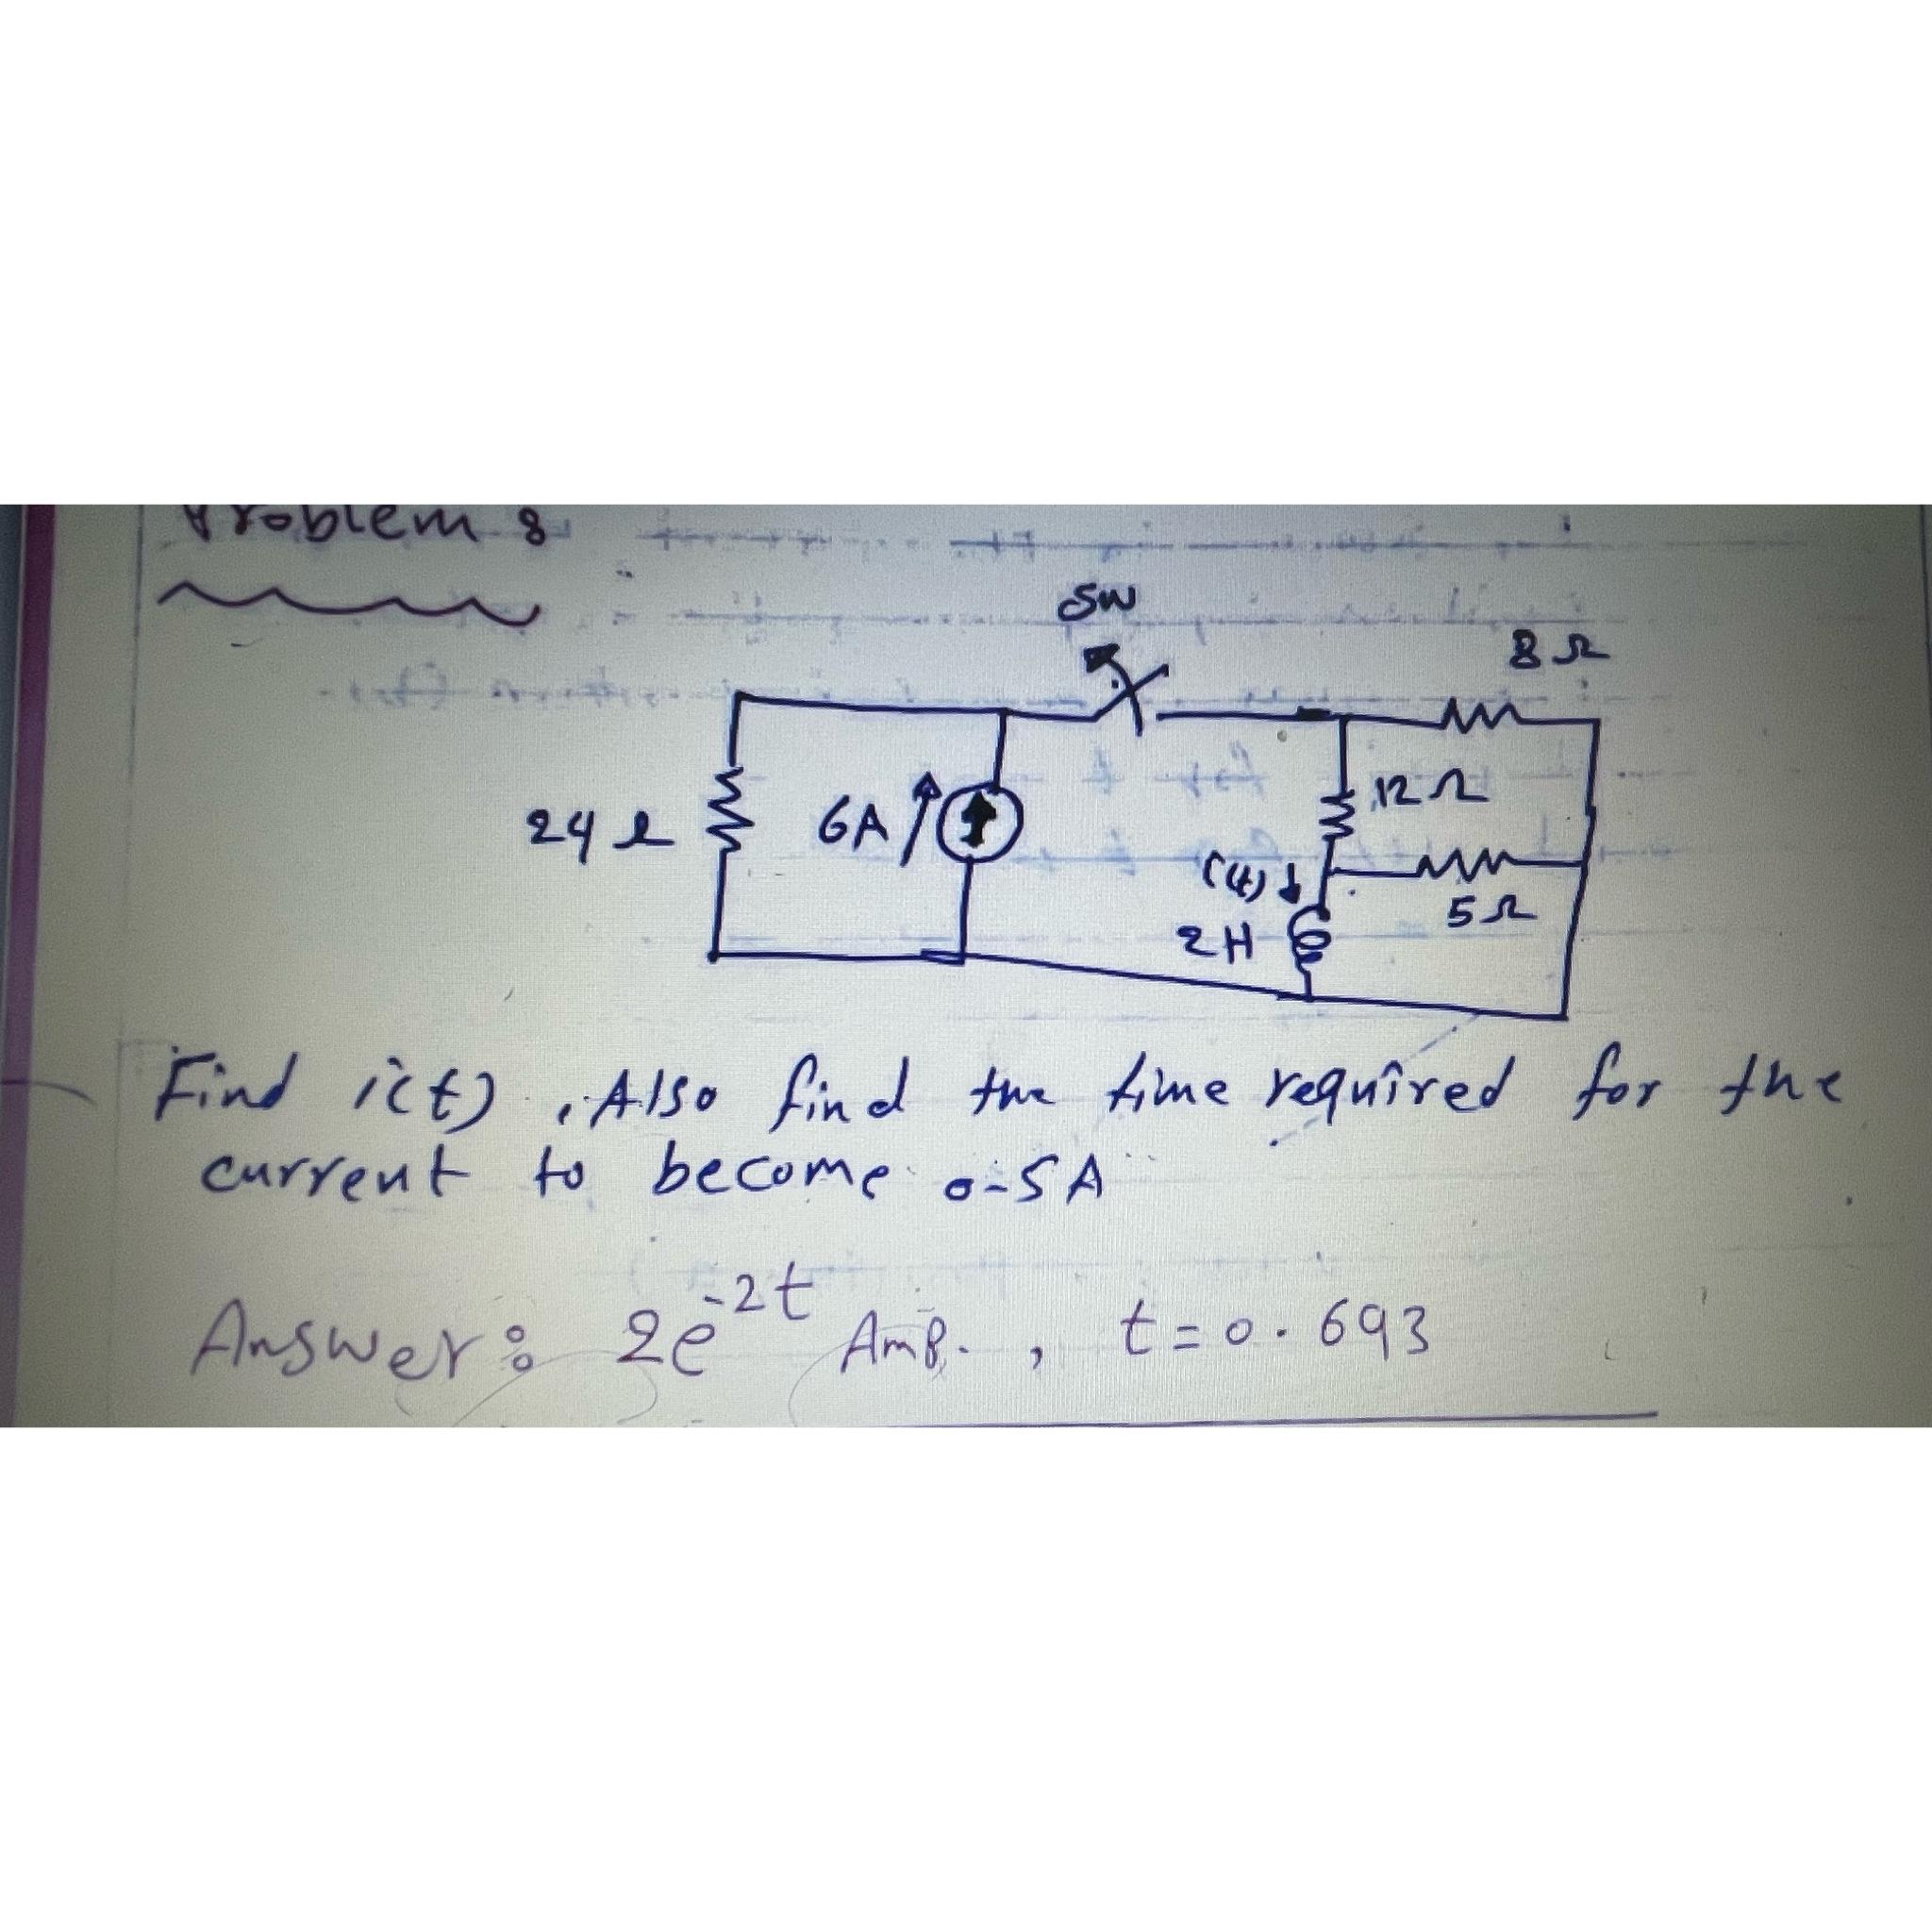 Problem 8
SW
8Ω
24Ω
6A
12Ω
i(t)
5Ω
2H
Find i(t). Also find the time required for the
current to become 0.5A
Answer: 2e^-2t Amp., t=0.693